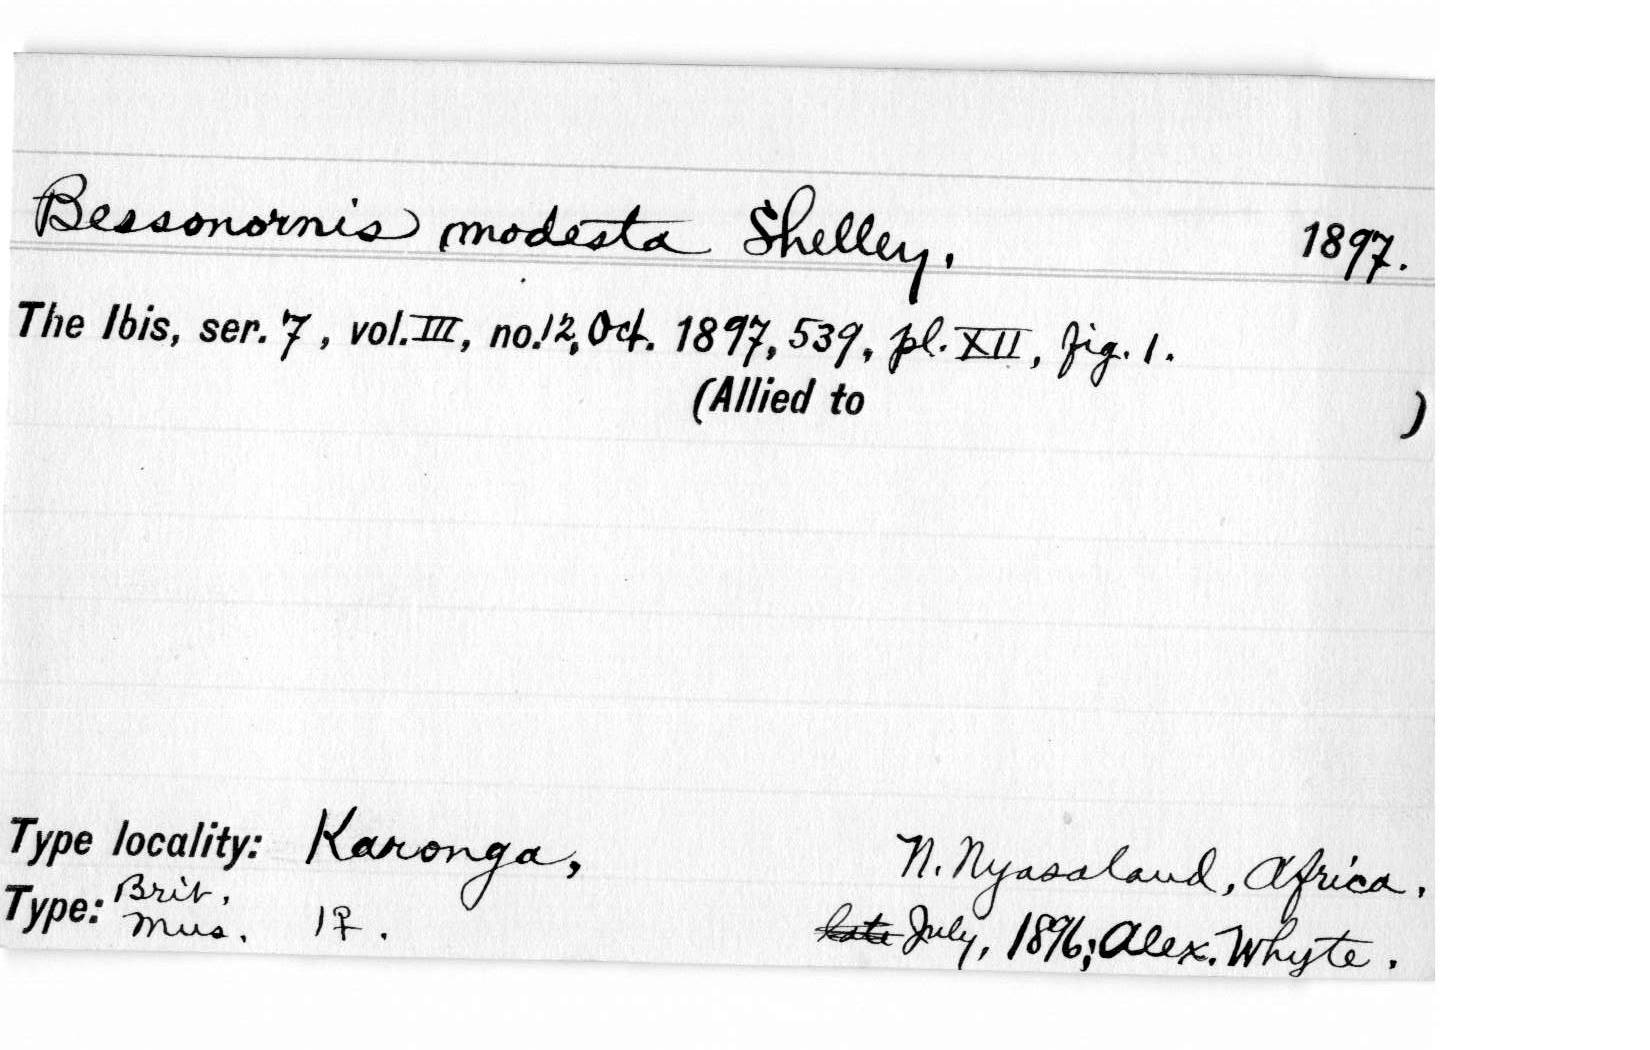 Bessonornis modesta Shelley, 1897.
The Ibis, ser. 7, vol. III, no. 12, Oct. 1897, 539, pl. XII, fig. 1.
(Allied to )
Type locality: Karonga, N. Nyasaland, Africa.
Type: Brit. Mus. 1♀. late July, 1896; Alex. Whyte.